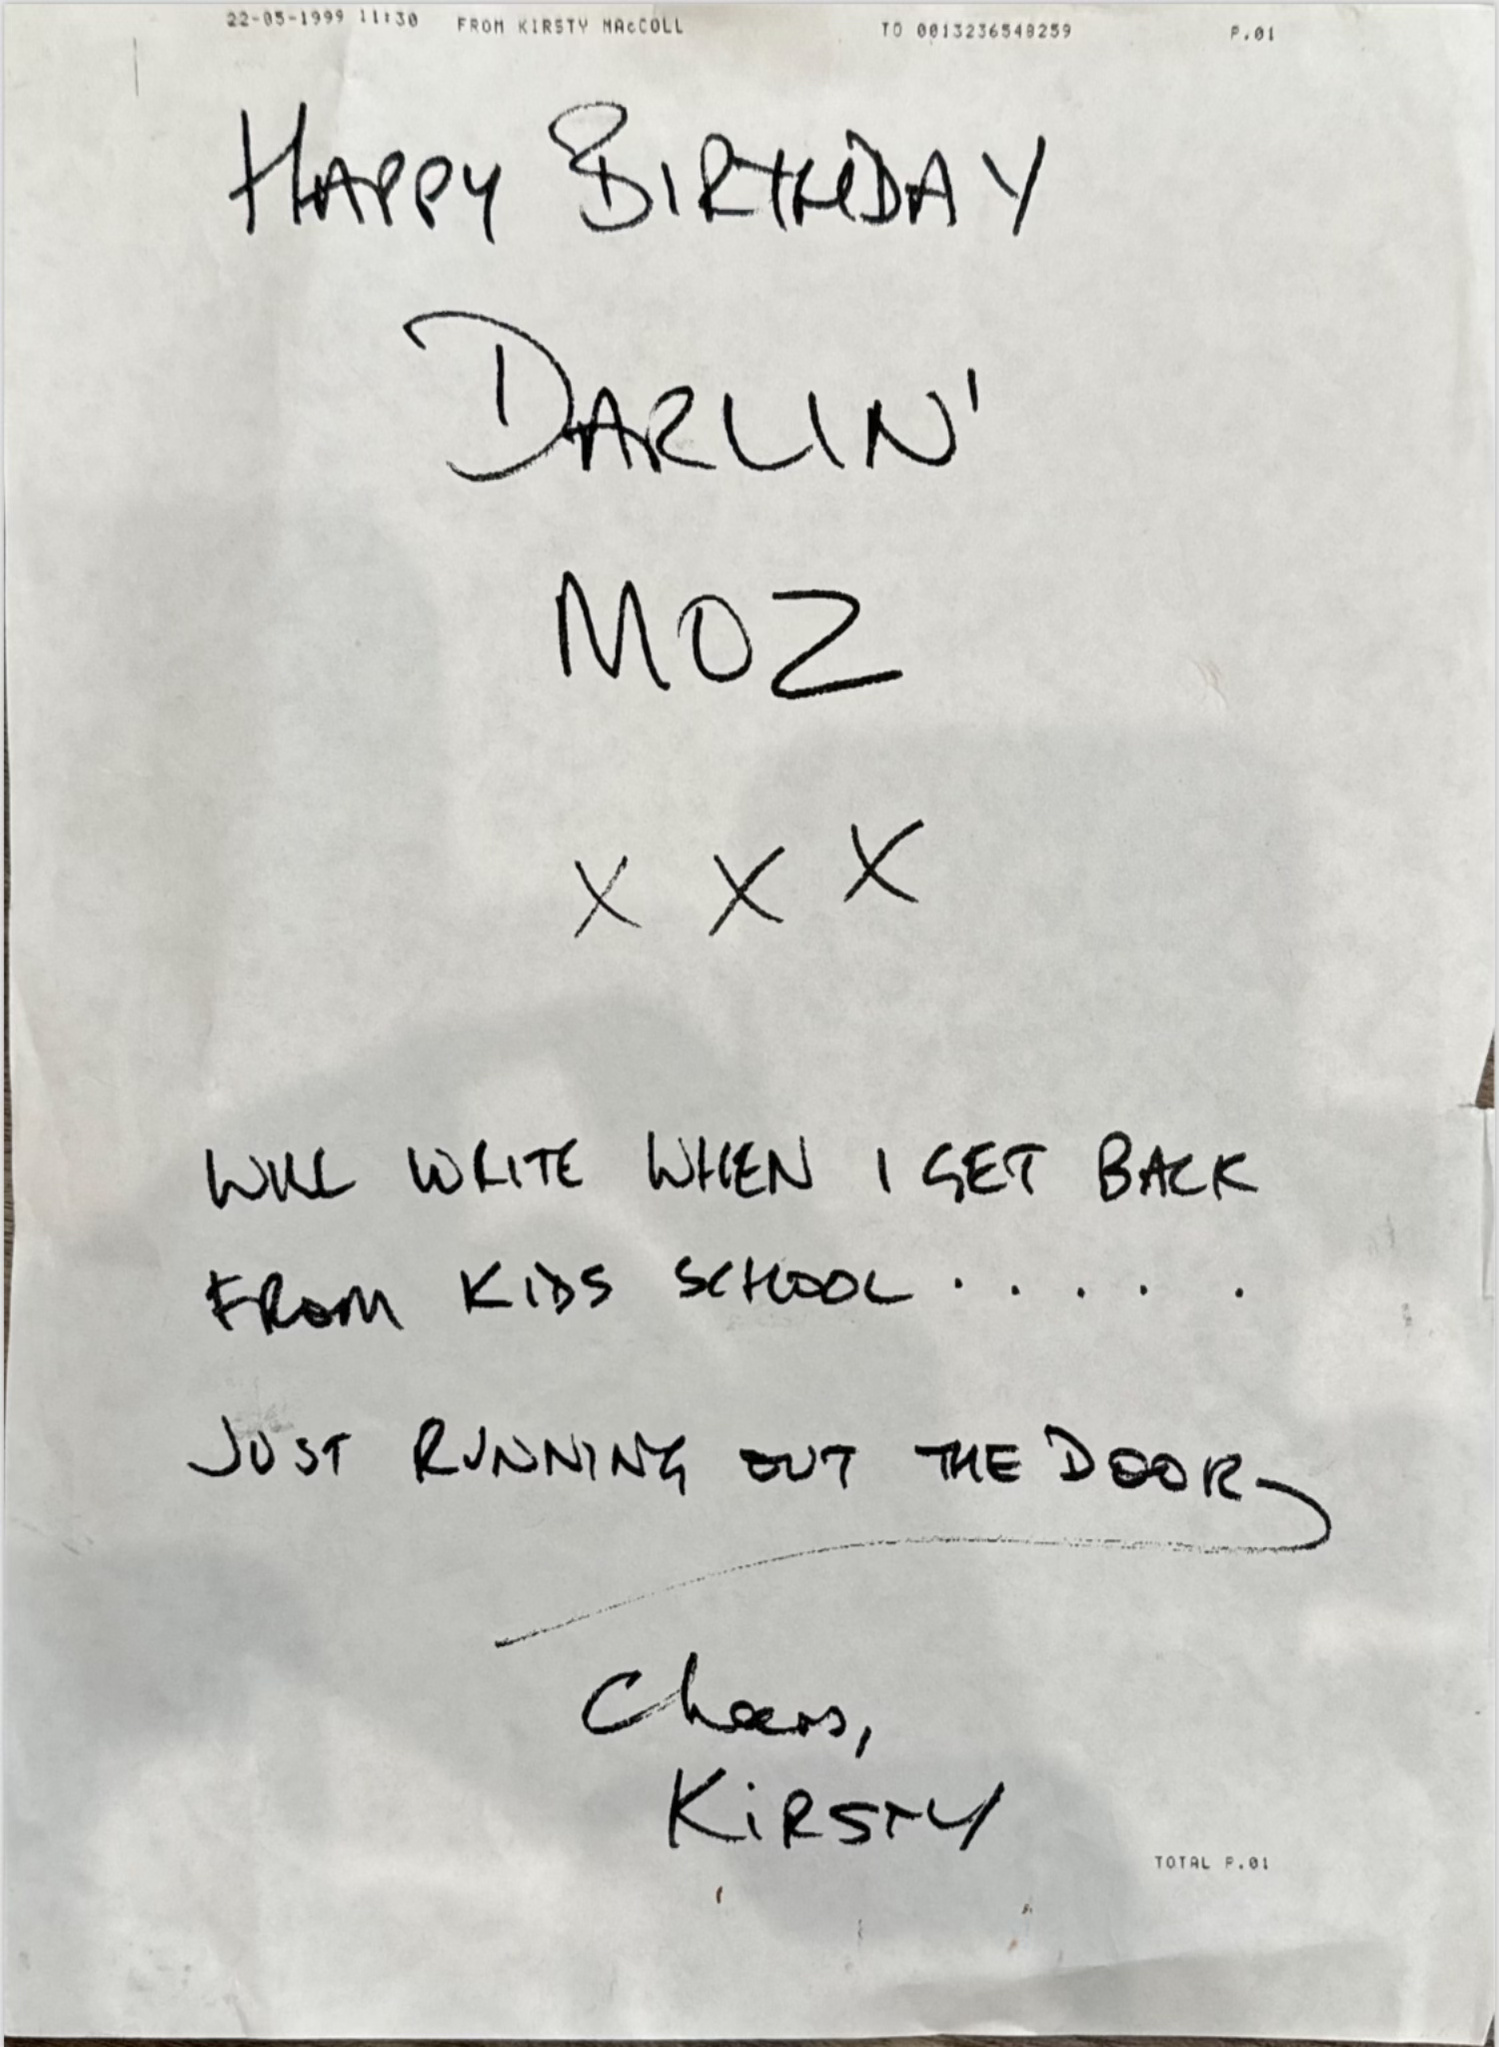 22-05-1999 11:30 FROM KIRSTY MAcCOLL TO 0013236548259 P.01
HAPPY BIRTHDAY
DARLIN'
MOZ
X X X
WILL WRITE WHEN I GET BACK
FROM KIDS SCHOOL . . . . .
JUST RUNNING OUT THE DOOR
Cheers,
KiRSTY
TOTAL P.01